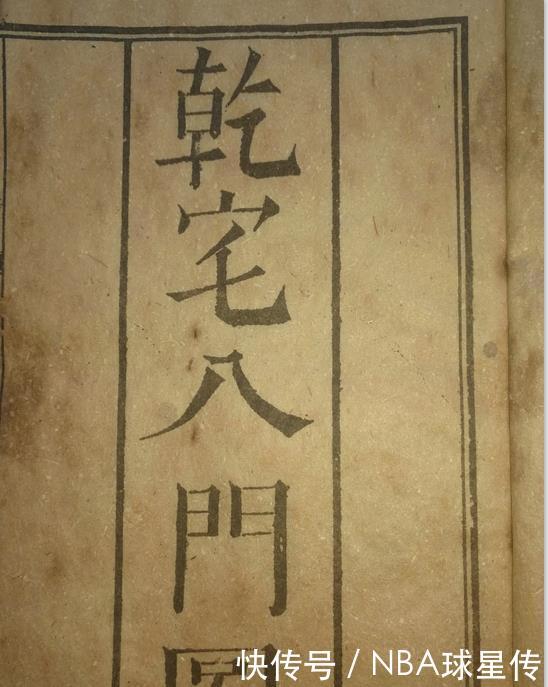 乾宅八門
快传号 / NBA球星传